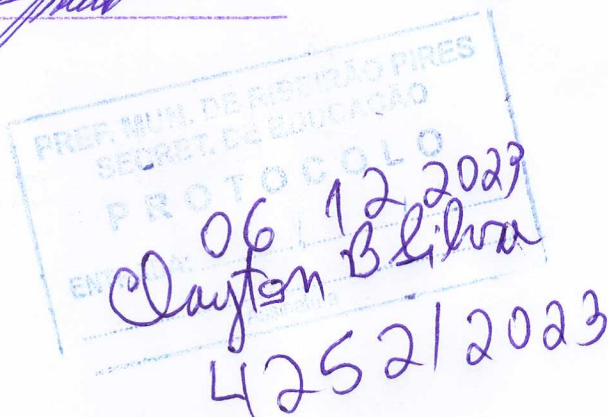 PREF. MUN. DE RIBEIRÃO PIRES
SECRET. DE EDUCAÇÃO
PROTOCOLO
06 12 2023
Clayton B Silva
4252/2023